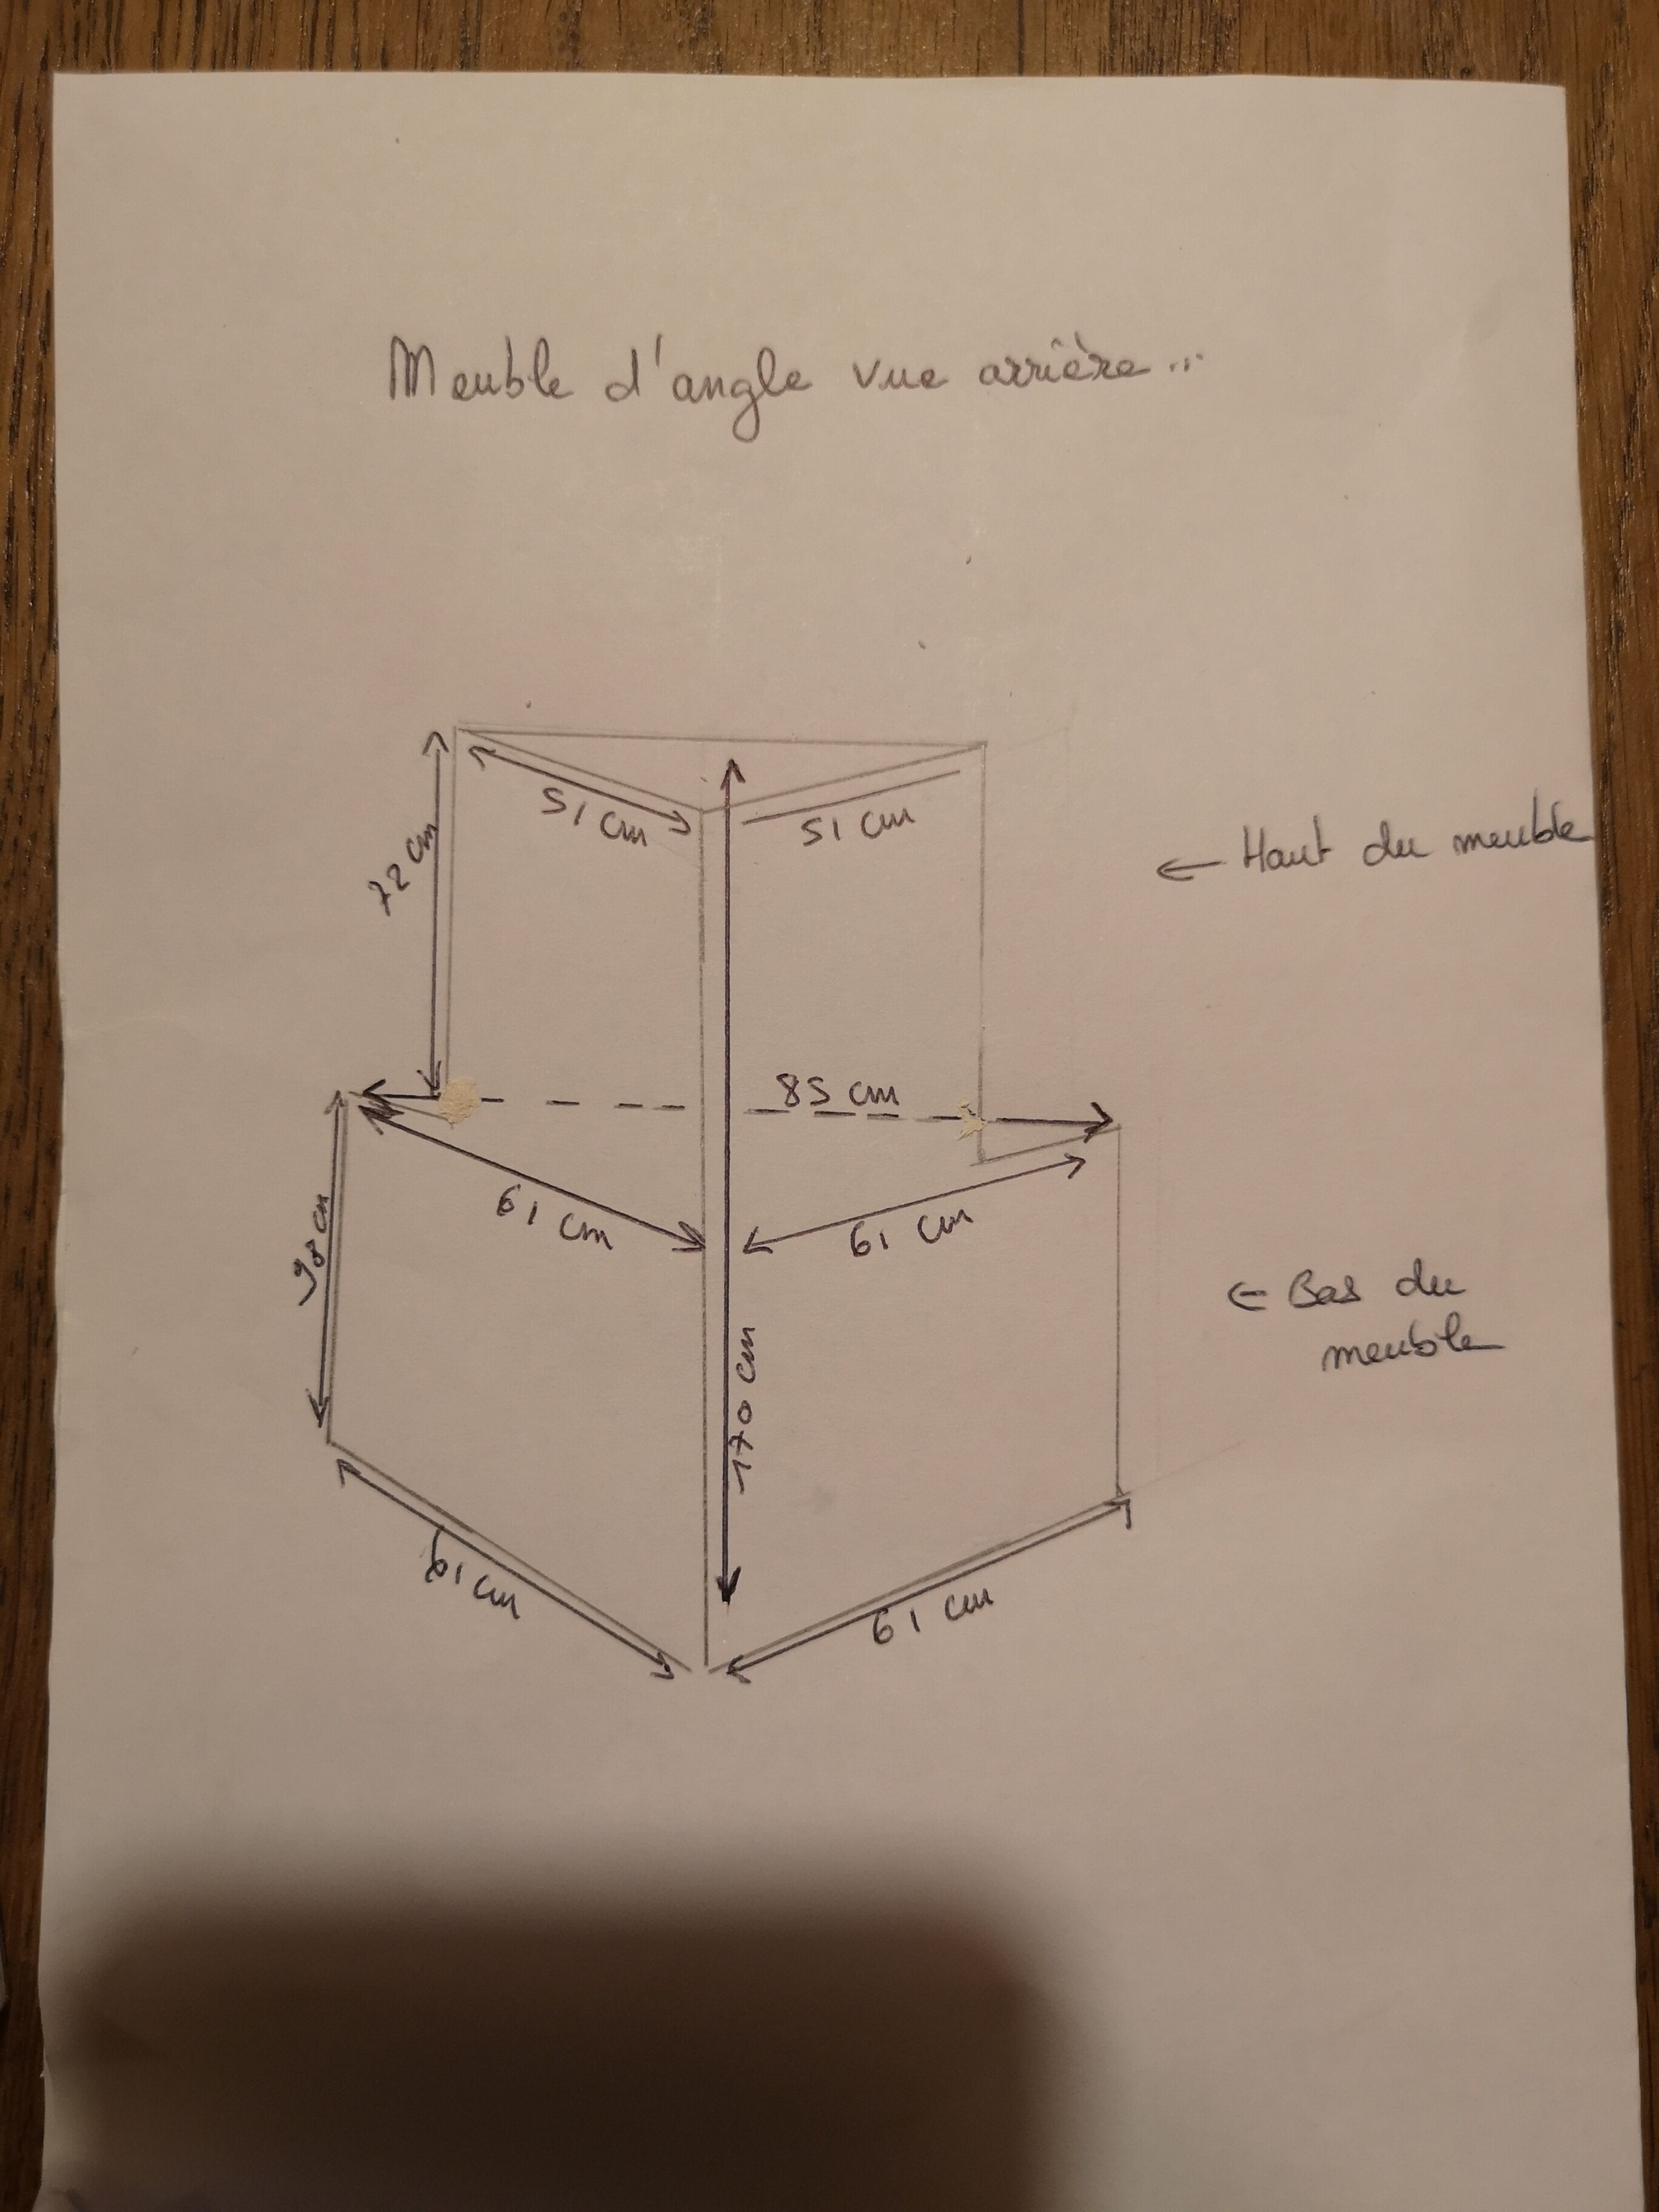 Meuble d'angle vue arrière...
51 cm
51 cm
72 cm
← Haut du meuble
85 cm
61 cm
61 cm
98 cm
← Bas du
meuble
170 cm
61 cm
61 cm